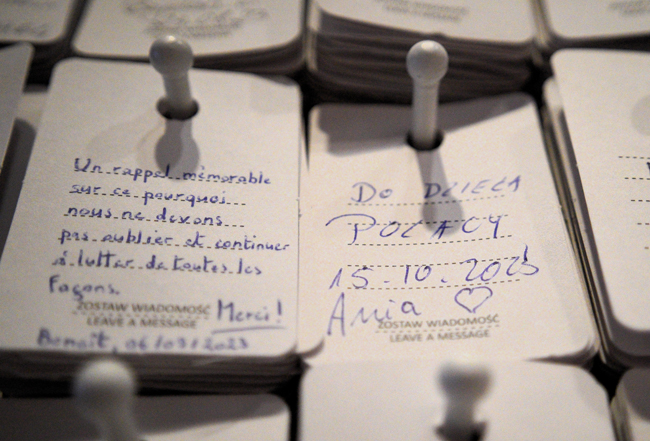 LEAVE A MESSAGE
Un rappel mémorable
sur ce pourquoi
nous ne devons
pas oublier et continuer
à lutter de toutes les
façons.
ZOSTAW WIADOMOŚĆ
LEAVE A MESSAGE
Merci!
Benoît, 06/09/2023
DO DZIEŁA
POLACY
15.10.2023
Ania ♡
ZOSTAW WIADOMOŚĆ
LEAVE A MESSAGE